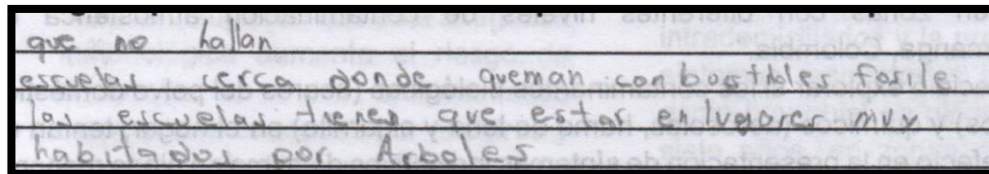 que no hallan
escuelas cerca donde queman combostibles fosile
las escuelas tienes que estar en lugares muy
habitados por Arboles